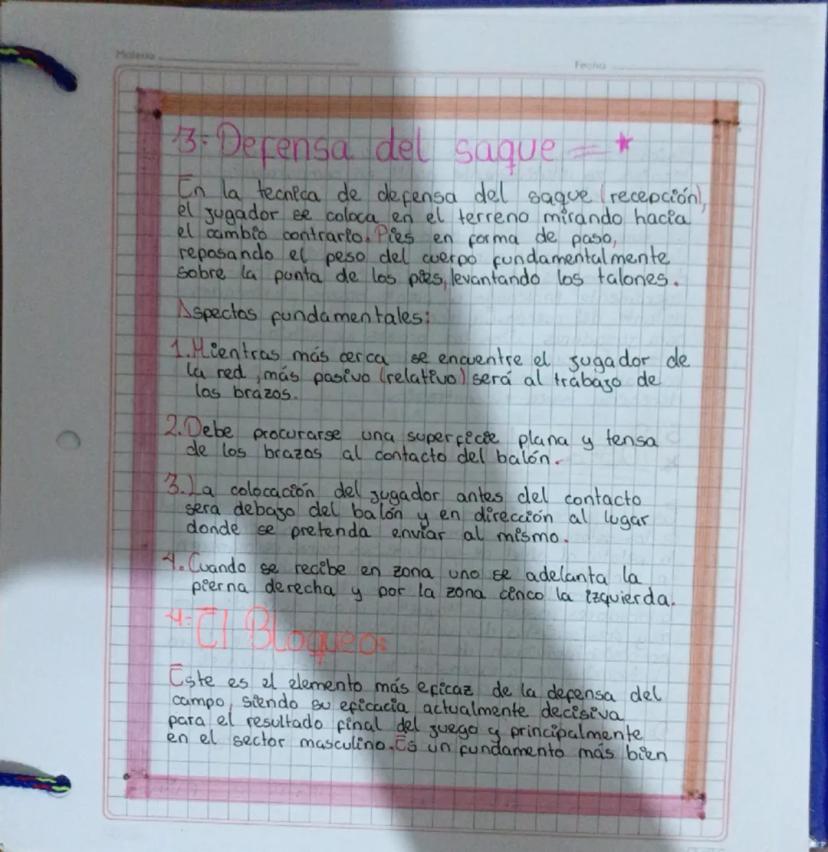 Materia
Fecha
3. Defensa del saque = ★
En la tecnica de defensa del saque (recepción),
el jugador se coloca en el terreno mirando hacia
el cambio contrario. Pies en forma de paso,
reposando el peso del cuerpo fundamentalmente
sobre la punta de los pies, levantando los talones.
Aspectos fundamentales:
1. Mientras más cerca se encuentre el jugador de
la red, más pasivo (relativo) será al trabajo de
los brazos.
2. Debe procurarse una superficie plana y tensa
de los brazos al contacto del balón.
3. La colocación del jugador antes del contacto
sera debajo del balón y en dirección al lugar
donde se pretenda enviar al mismo.
4. Cuando se recibe en zona uno se adelanta la
pierna derecha y por la zona cinco la izquierda.
4. El Bloqueo:
Este es el elemento más eficaz de la defensa del
campo, siendo su eficacia actualmente decisiva
para el resultado final del juego y principalmente
en el sector masculino. Es un fundamento más bien